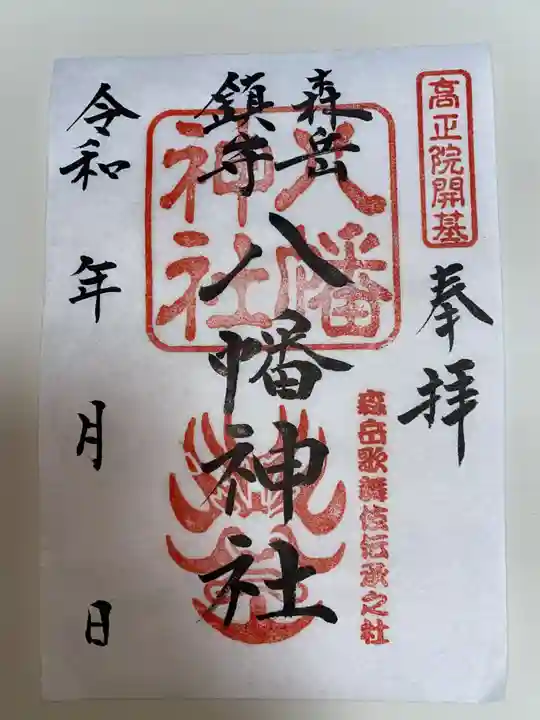 高正院開基
奉拝
森岳歌舞伎伝承之社
八幡
神社
森岳
鎮守
八幡神社
令和 年 月 日